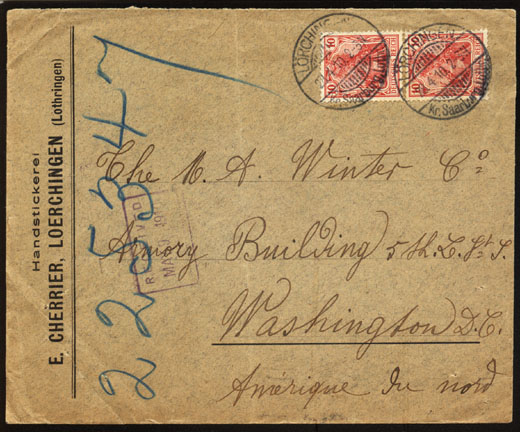 Handstickerei
E. CHERRIER, LOERCHINGEN (Lothringen)
22534
10
10
LÖRCHINGEN
LÖRCHINGEN
Kr. Saarburg
The M. A. Winter Co
Armory Building 5 th. L. St. S.
Washington D.C.
Amérique du nord
MAY